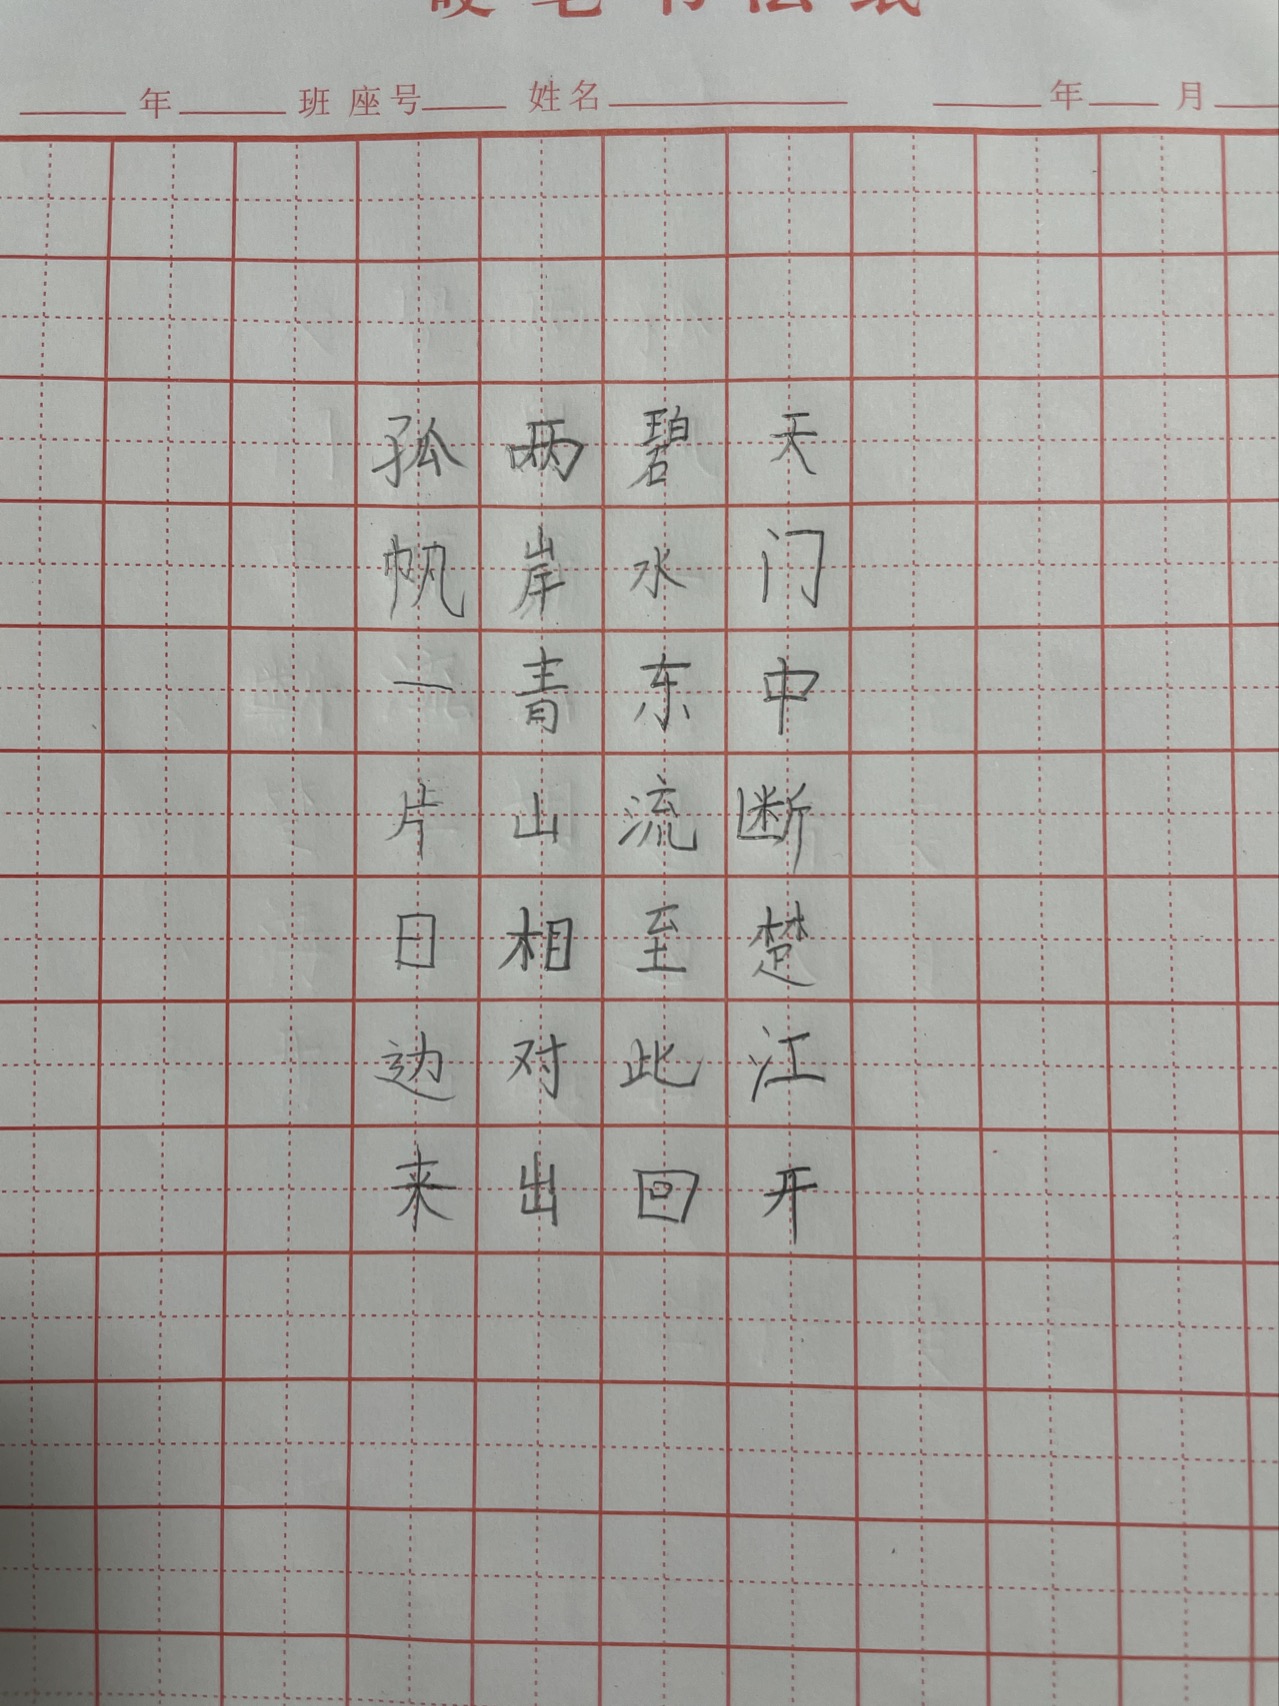 硬笔书法纸
年 班 座号 姓名 年 月
天门中断楚江开
碧水东流至此回
两岸青山相对出
孤帆一片日边来